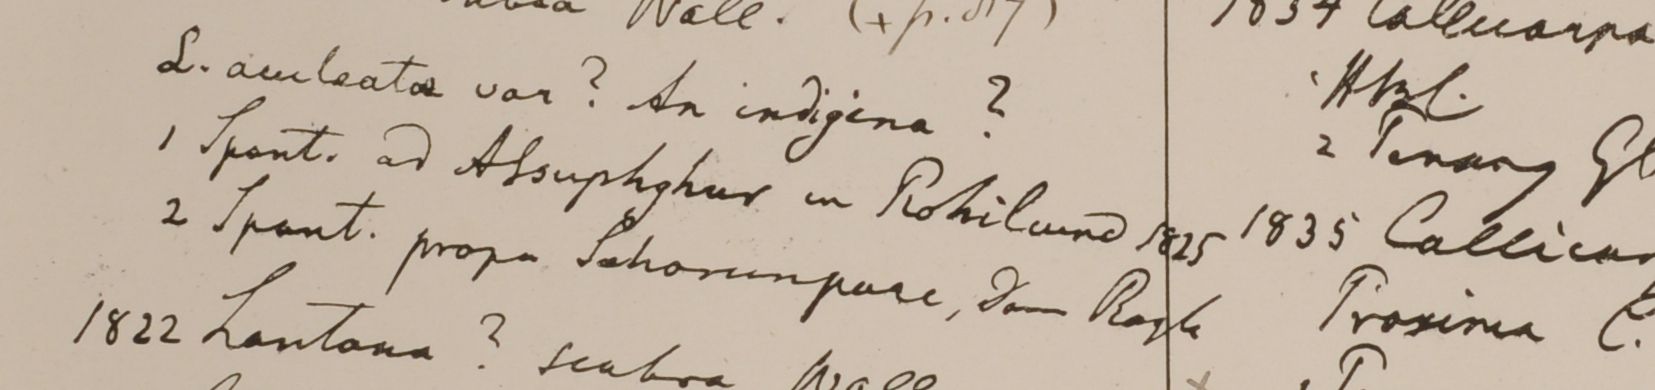 Wall. (+ p. 87)
L. aculeata var? An indigena?
1 Spont. ad Afsuphghur in Rohilcund 1825
2 Spont. prope Saharunpore, Dom Royle
1822 Lantana? scabra Wall
1834 Callicarpa
Hb
2 Penang
1835 Callicar
Proxima C.